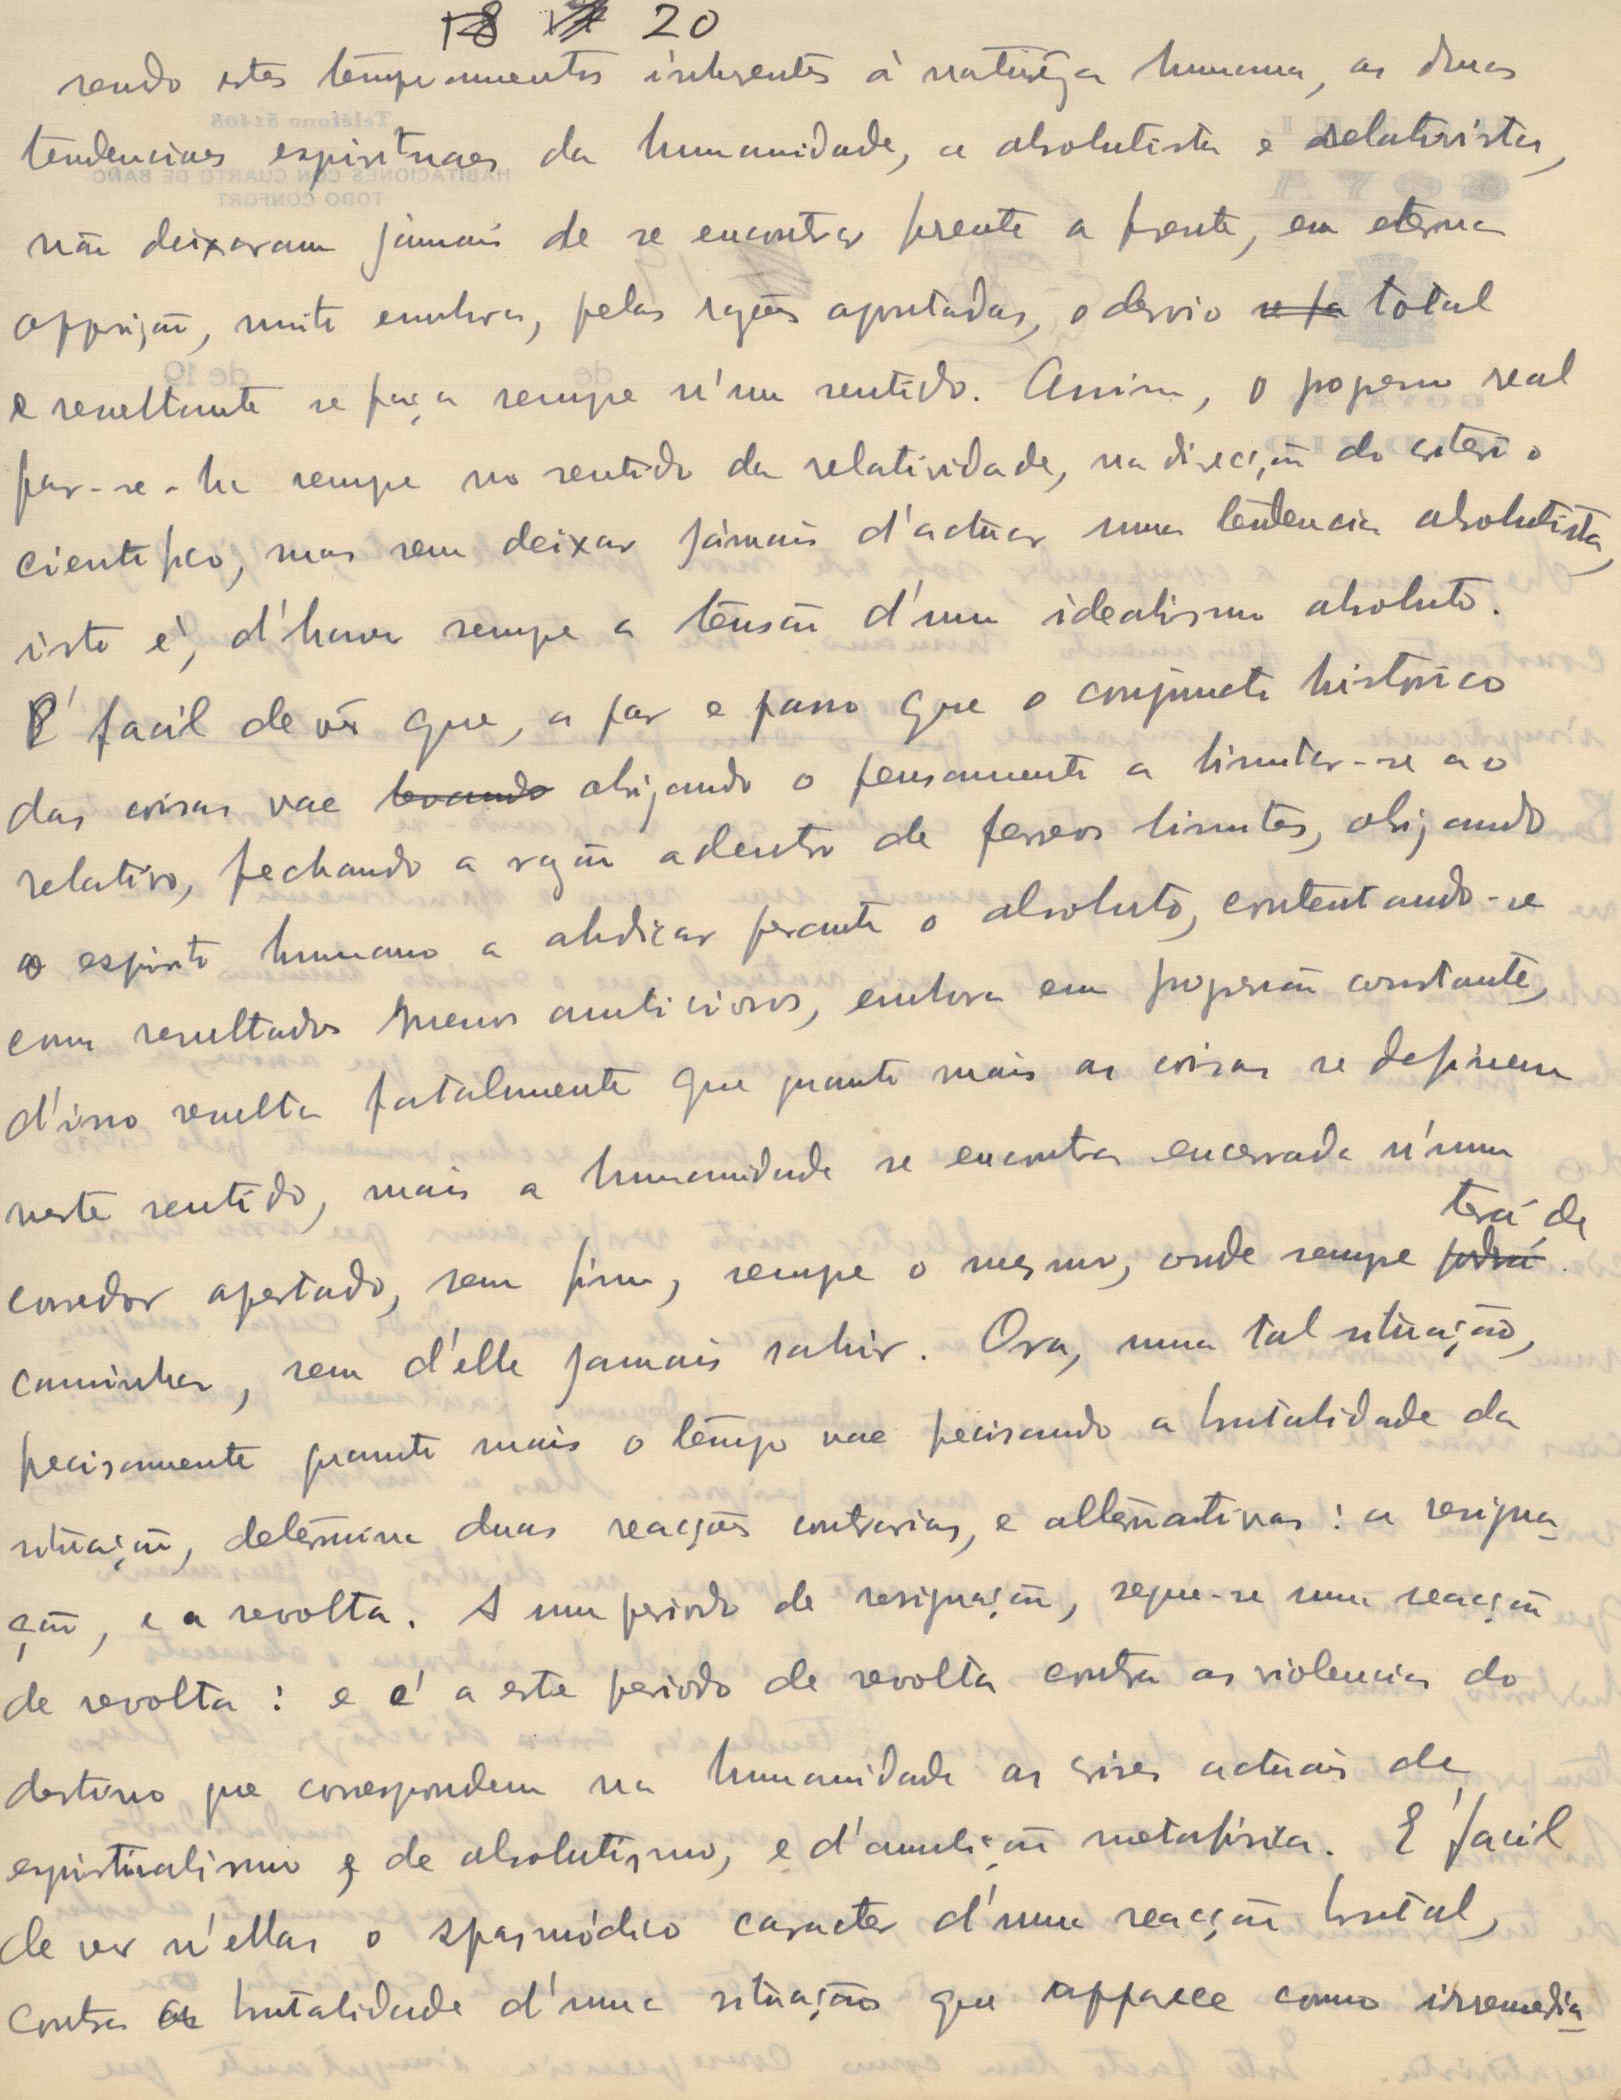 18 17 20
sendo estes temperamentos inherentes á natureza humana, as duas
tendencias espirituaes da humanidade, a absolutista e relativista,
não deixaram jámais de se encontrar frente a frente, em eterna
opposição, muito embora, pelas razões apontadas, o desvio total
e resultante se faça sempre n'um sentido. Assim, o progresso real
far-se-ha sempre no sentido da relatividade, na direcção do criterio
cientifico, mas sem deixar jámais d'actuar uma tendencia absolutista,
isto é, d'haver sempre a tensão d'um idealismo absoluto.
E' facil de vêr que, a par e passo que o conjuncto historico
das coisas vae levando obrigando o pensamento a limitar-se ao
relativo, fechando a razão adentro de ferreos limites, obrigando
o espirito humano a abdicar perante o absoluto, contentando-se
com resultados menos ambiciosos, embora em progressão constante,
d'isso resulta fatalmente que quanto mais as coisas se definem
neste sentido, mais a humanidade se encontra encerrada n'um
terá de
corredor apertado, sem fim, sempre o mesmo, onde sempre poderá
caminhar, sem d'elle jamais sahir. Ora, uma tal situação,
precisamente quanto mais o tempo vae precisando a brutalidade da
situação, determina duas reacções contrarias, e alternativas: a resigna-
ção, e a revolta. A um periodo de resignação, segue-se uma reacção
de revolta: e é a este periodo de revolta contra as violencias do
destino que correspondem na humanidade as crises actuais de
espiritualismo e de absolutismo, e d'ambição metafisica. E' facil
de ver n'ellas o spasmódico caracter d'uma reacção brutal,
contra a brutalidade d'uma situação que apparece como irremedia-